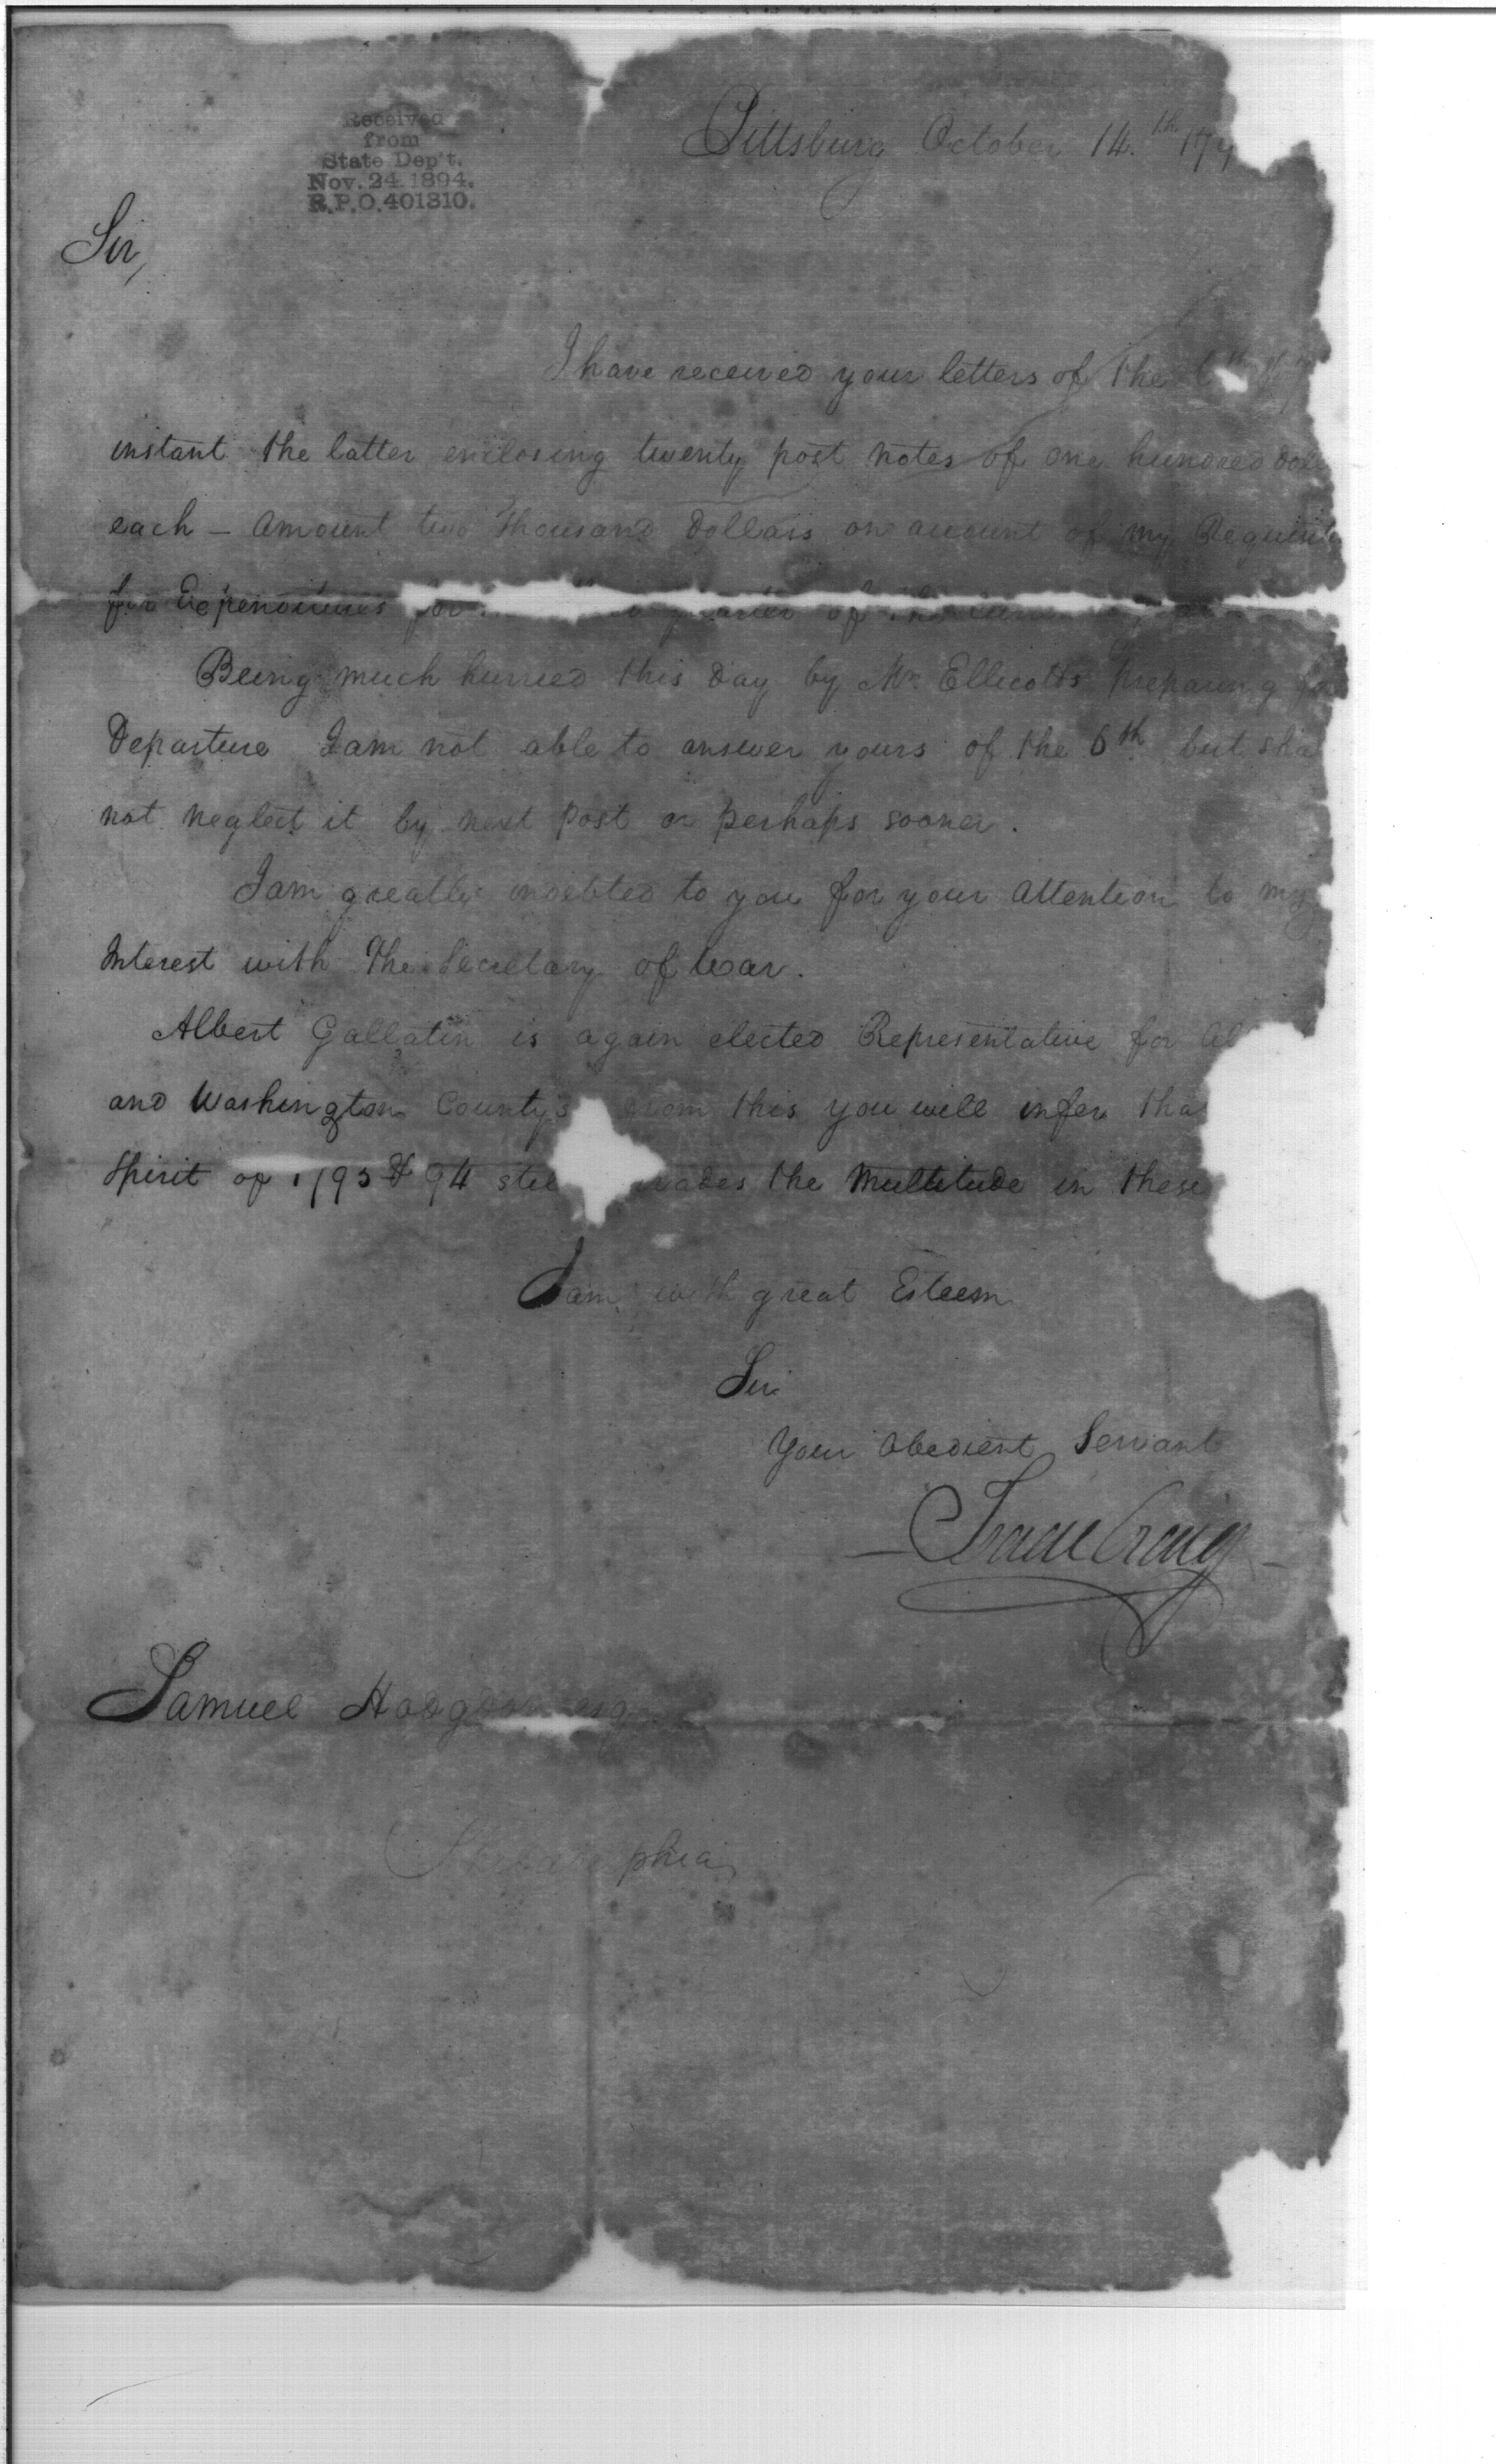 Received
from
State Dep't.
Nov. 24 1894.
R.P.O. 401310.
Pittsburg October 14.th 179
Sir,
I have received your letters of the
instant the latter enclosing twenty post notes of one hundred doll
each – Amount two Thousand Dollars on account of my Requisit
for Expenditures for quarter of
Being much hurried this day by Mr. Ellicotts preparing for
Departure I am not able to answer yours of the 6th but sha
not neglect it by next post or perhaps sooner.
I am greatly indebted to you for your Attention to my
Interest with the Secretary of War.
Albert Gallatin is again elected Representative for All
and Washington Countys from this you will infer tha
Spirit of 1793 & 94 stil vades the Multitude in these
I am with great Esteem
Sir
Your Obedient Servant
– Isaac Craig –
Samuel Hodgdon Esq
Philadelphia